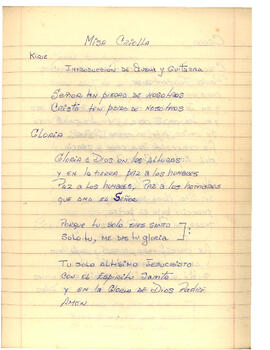 Misa Criolla
Kirie
Introducción de Quena y Guitarra
Señor ten piedad de nosotros
Cristo ten piedad de nosotros
Gloria
Gloria a Dios en las alturas
y en la tierra, paz a los hombres
Paz a los hombres, Paz a los hombres
que ama el Señor
Porque tu solo eres santo
Solo tu, me das tu gloria
Tu solo altisimo Jesucristo
con el Espiritu Santo
y en la Gloria de Dios Padre
Amen